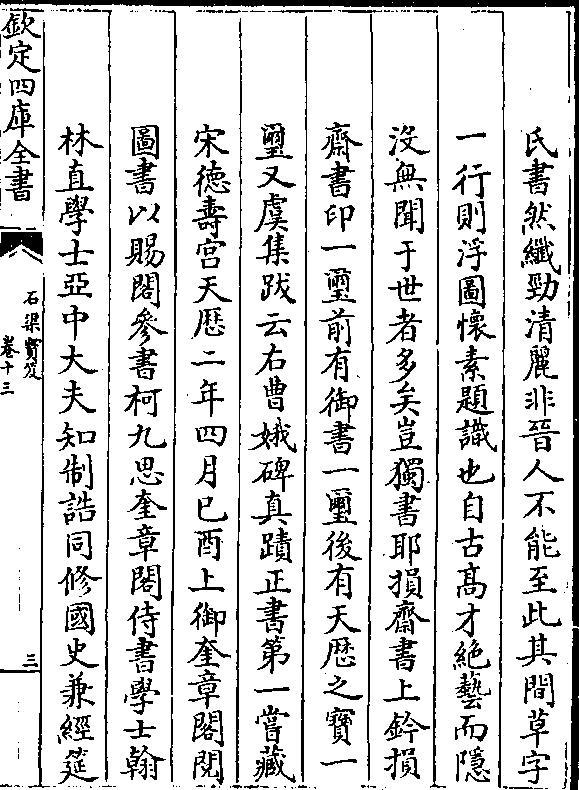 氏書然纖勁清麗非晉人不能至此其間草字
一行則浮圖懷素題識也自古髙才絶藝而隱
没無聞于世者多矣豈獨書耶損齋書上鈐損
齋書印一璽前有御書一璽後有天厯之寶一
璽又虞集跋云右曹娥碑真蹟正書第一嘗藏
宋德壽宫天厯二年四月已酉上御奎章閣閲
圖書以賜閣參書柯九思奎章閣侍書學士翰
林直學士亞中大夫知制誥同修國史兼經筵
欽定四庫全書
石渠寳笈
卷十三
三